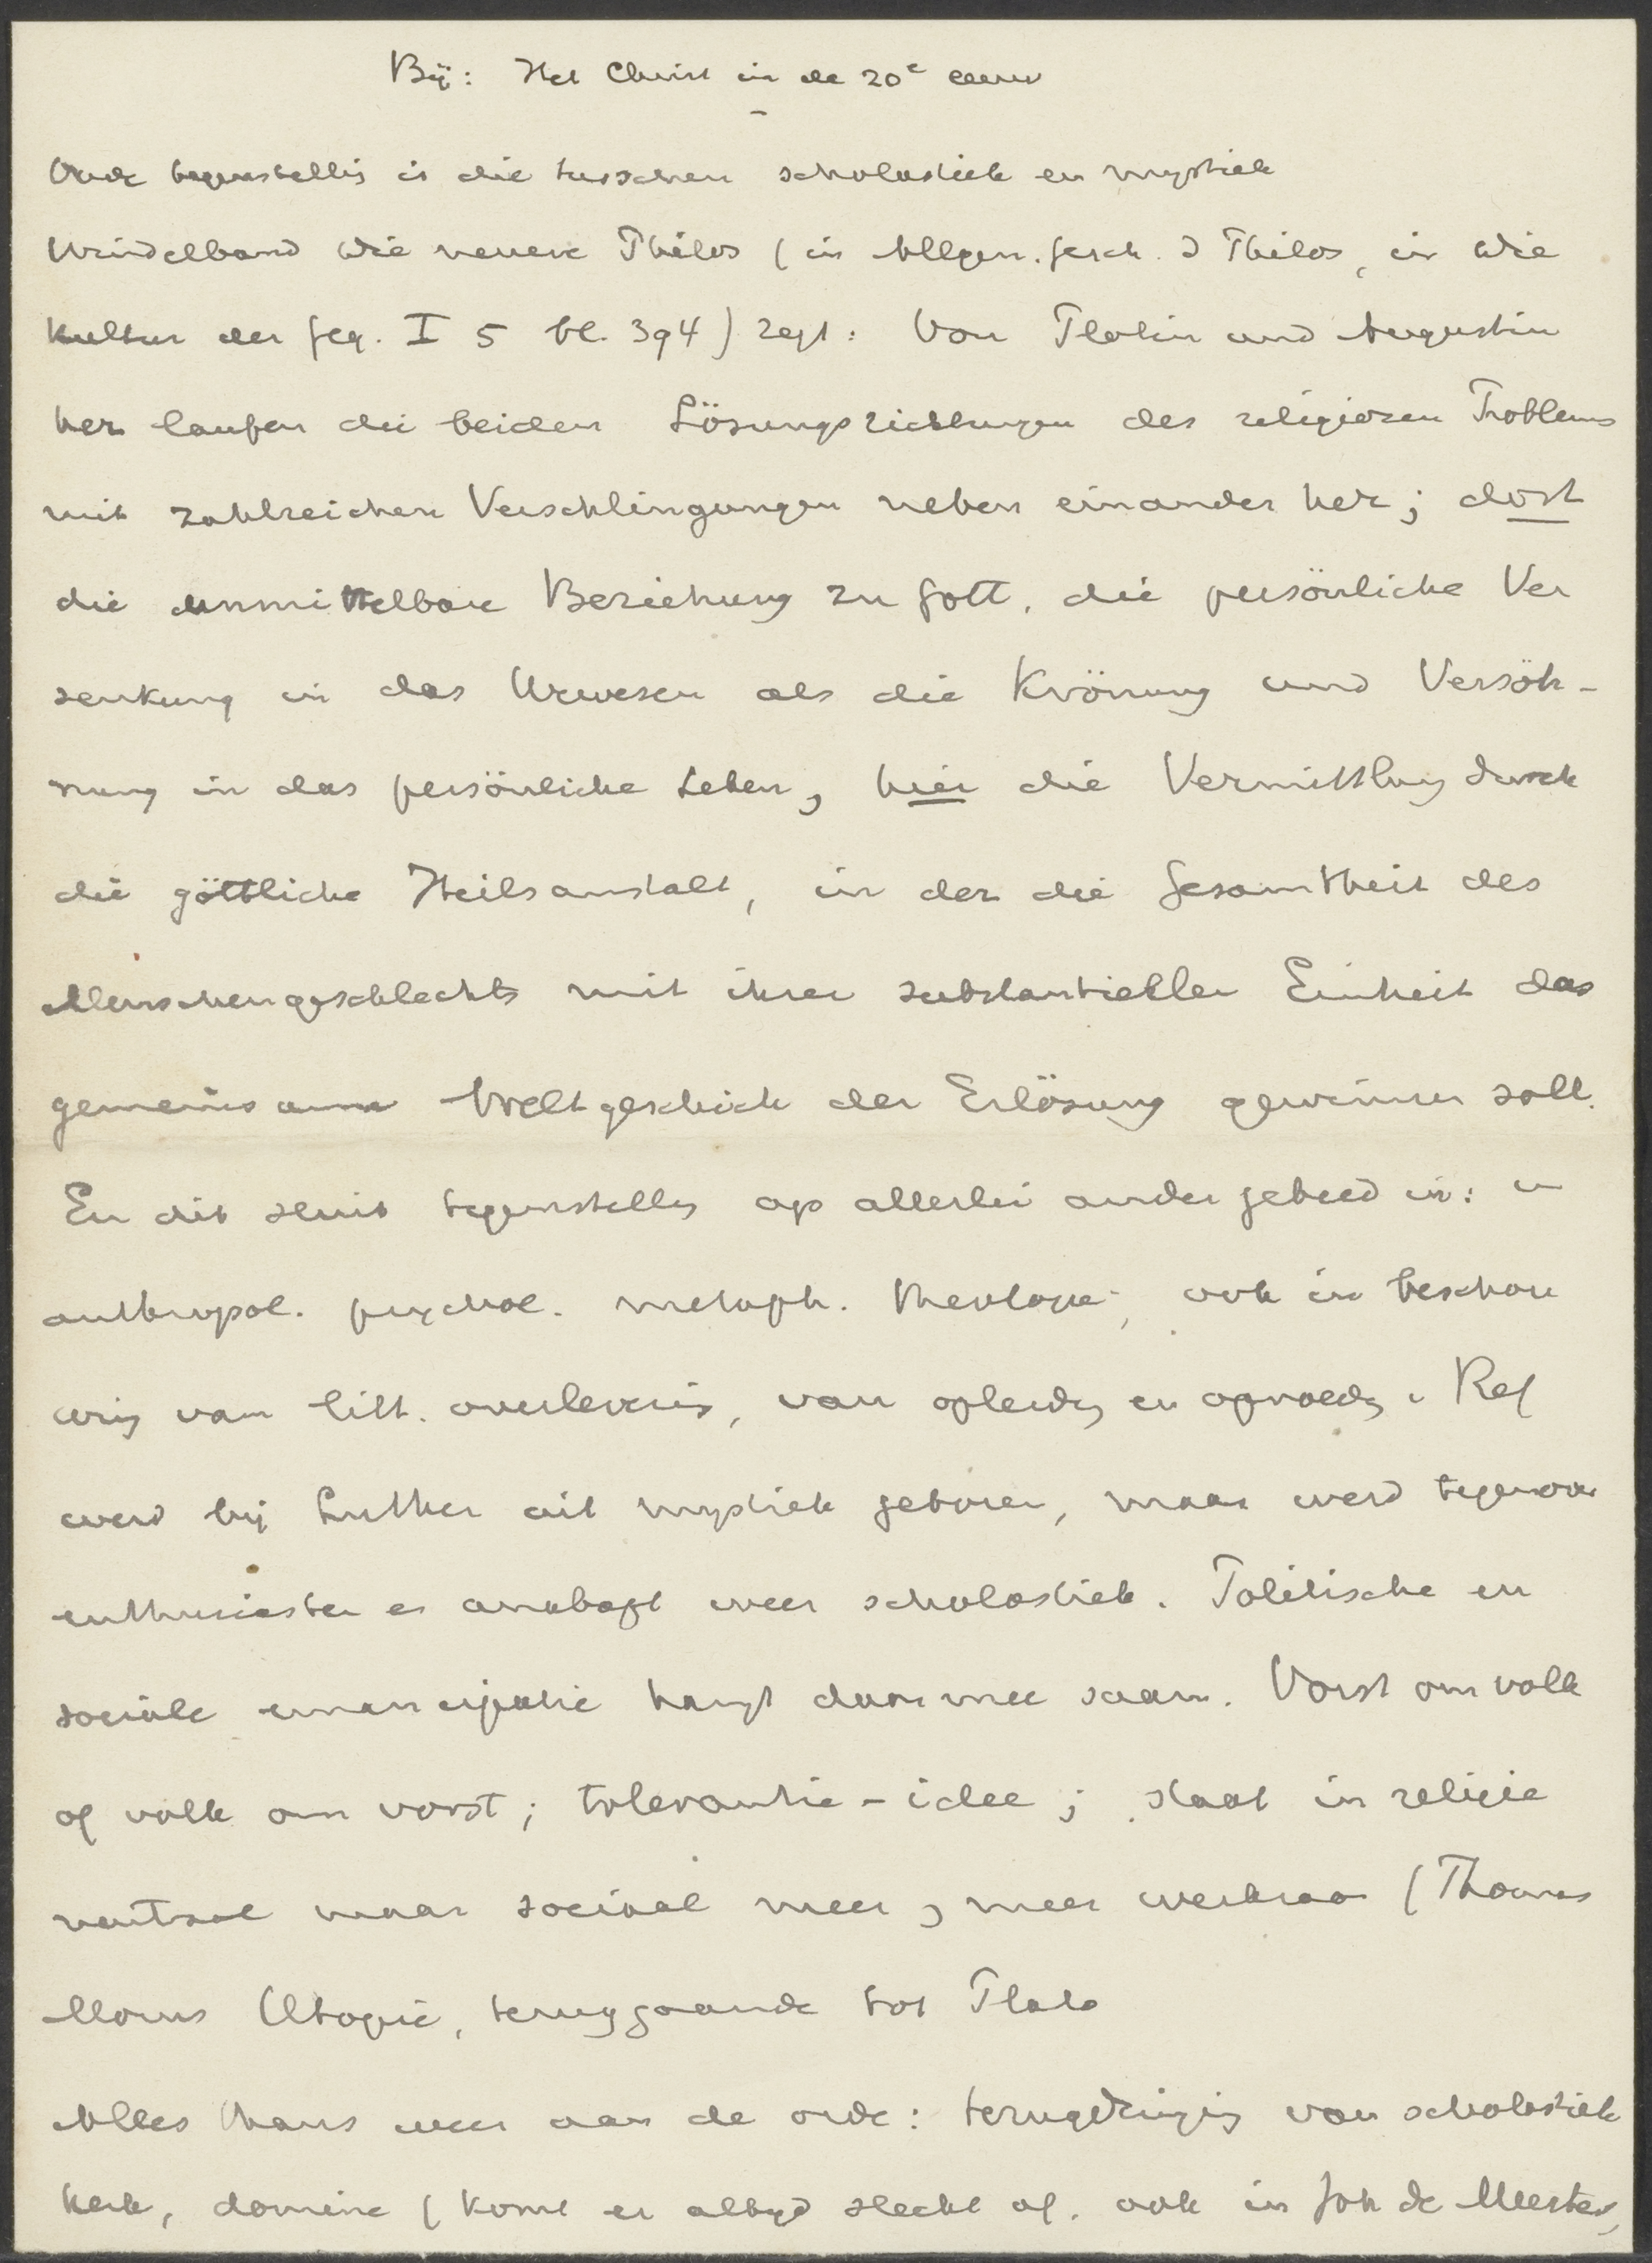 Bij: Het Christ in de 20e eeuw
Oude tegenstellig is die tusschen scholastiek en mystiek
Windelband Die neuere Philos (in Allgem. Gesch. d Philos, in Die
Kultur der Geg. I 5 bl. 394) zegt: Von Plotin und Augustin
her laufen die beiden Lösungsrichtungen des religiozen Problems
mit zahlreichen Verschlingungen neben einander her; dort
die unmittelbare Beziehung zu Gott, die persönliche Ver
senkung in das Urwesen als die Krönung und Versöh-
nung in das persönliche Leben, hier die Vermittlung durch
die göttliche Heilsanstalt, in der die Gesamtheit des
Menschengeschlechts mit ihrer substantiellen Einheit das
gemeinsame Weltgeschick der Erlösung gewinnen soll.
En dit sluit tegenstellg op allerlei ander gebied in: in
anthropol. psychol. metaph. theologie, ook in beschou
wing van litt. overleverig, van opleidg en opvoedg. Ref
werd bij Luther uit mystiek geboren, maar werd tegenover
enthusiasten en anabapt weer scholastiek. Politische en
sociale emancipatie hangt daarmee saam. Vorst om volk
of volk om vorst; tolerantie-idee; staat in religie
neutraal maar sociaal meer, meer werkzaam (Thomas
Morus Utopie, teruggaande tot Plato
Alles thans weer aan de orde: terugdringig van scholastiek
kerk, domine (komt er altijd slecht af, ook in Joh de Meester,